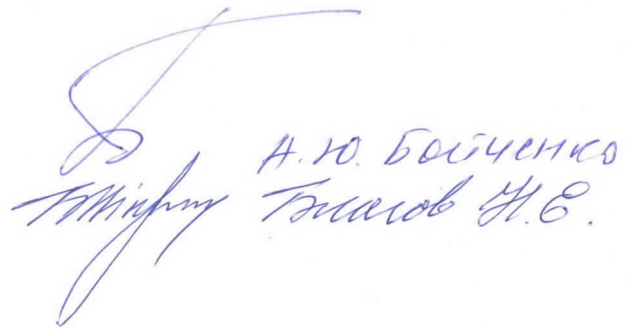 А.Ю. Бойченко
Благов Н.Е.